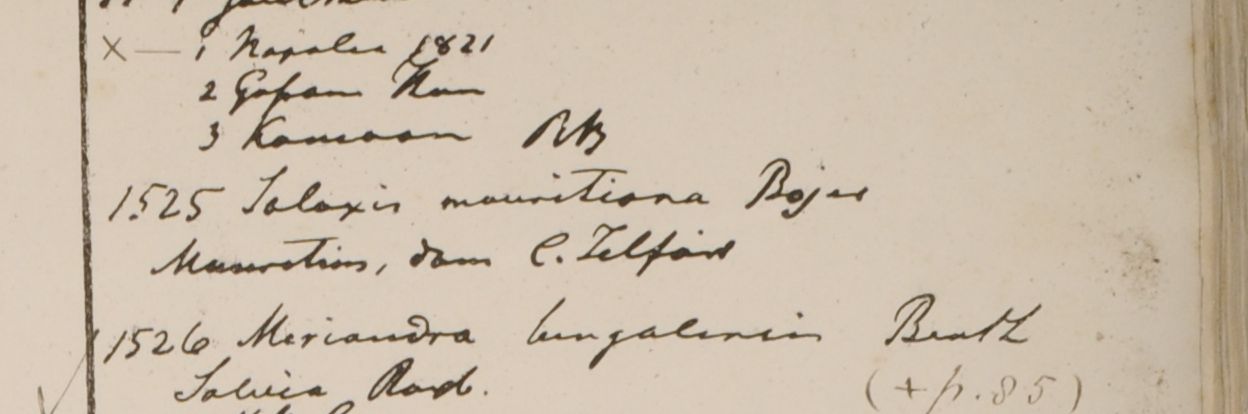 1 Napalia 1821
2 Gossam Than
3 Kamaon RB
1525 Salaxis mauritiana Bojer
Mauritius, dom C. Telfair
1526 Meriandra bengalensis Benth
Salvia Roxb.
(+ p. 85)